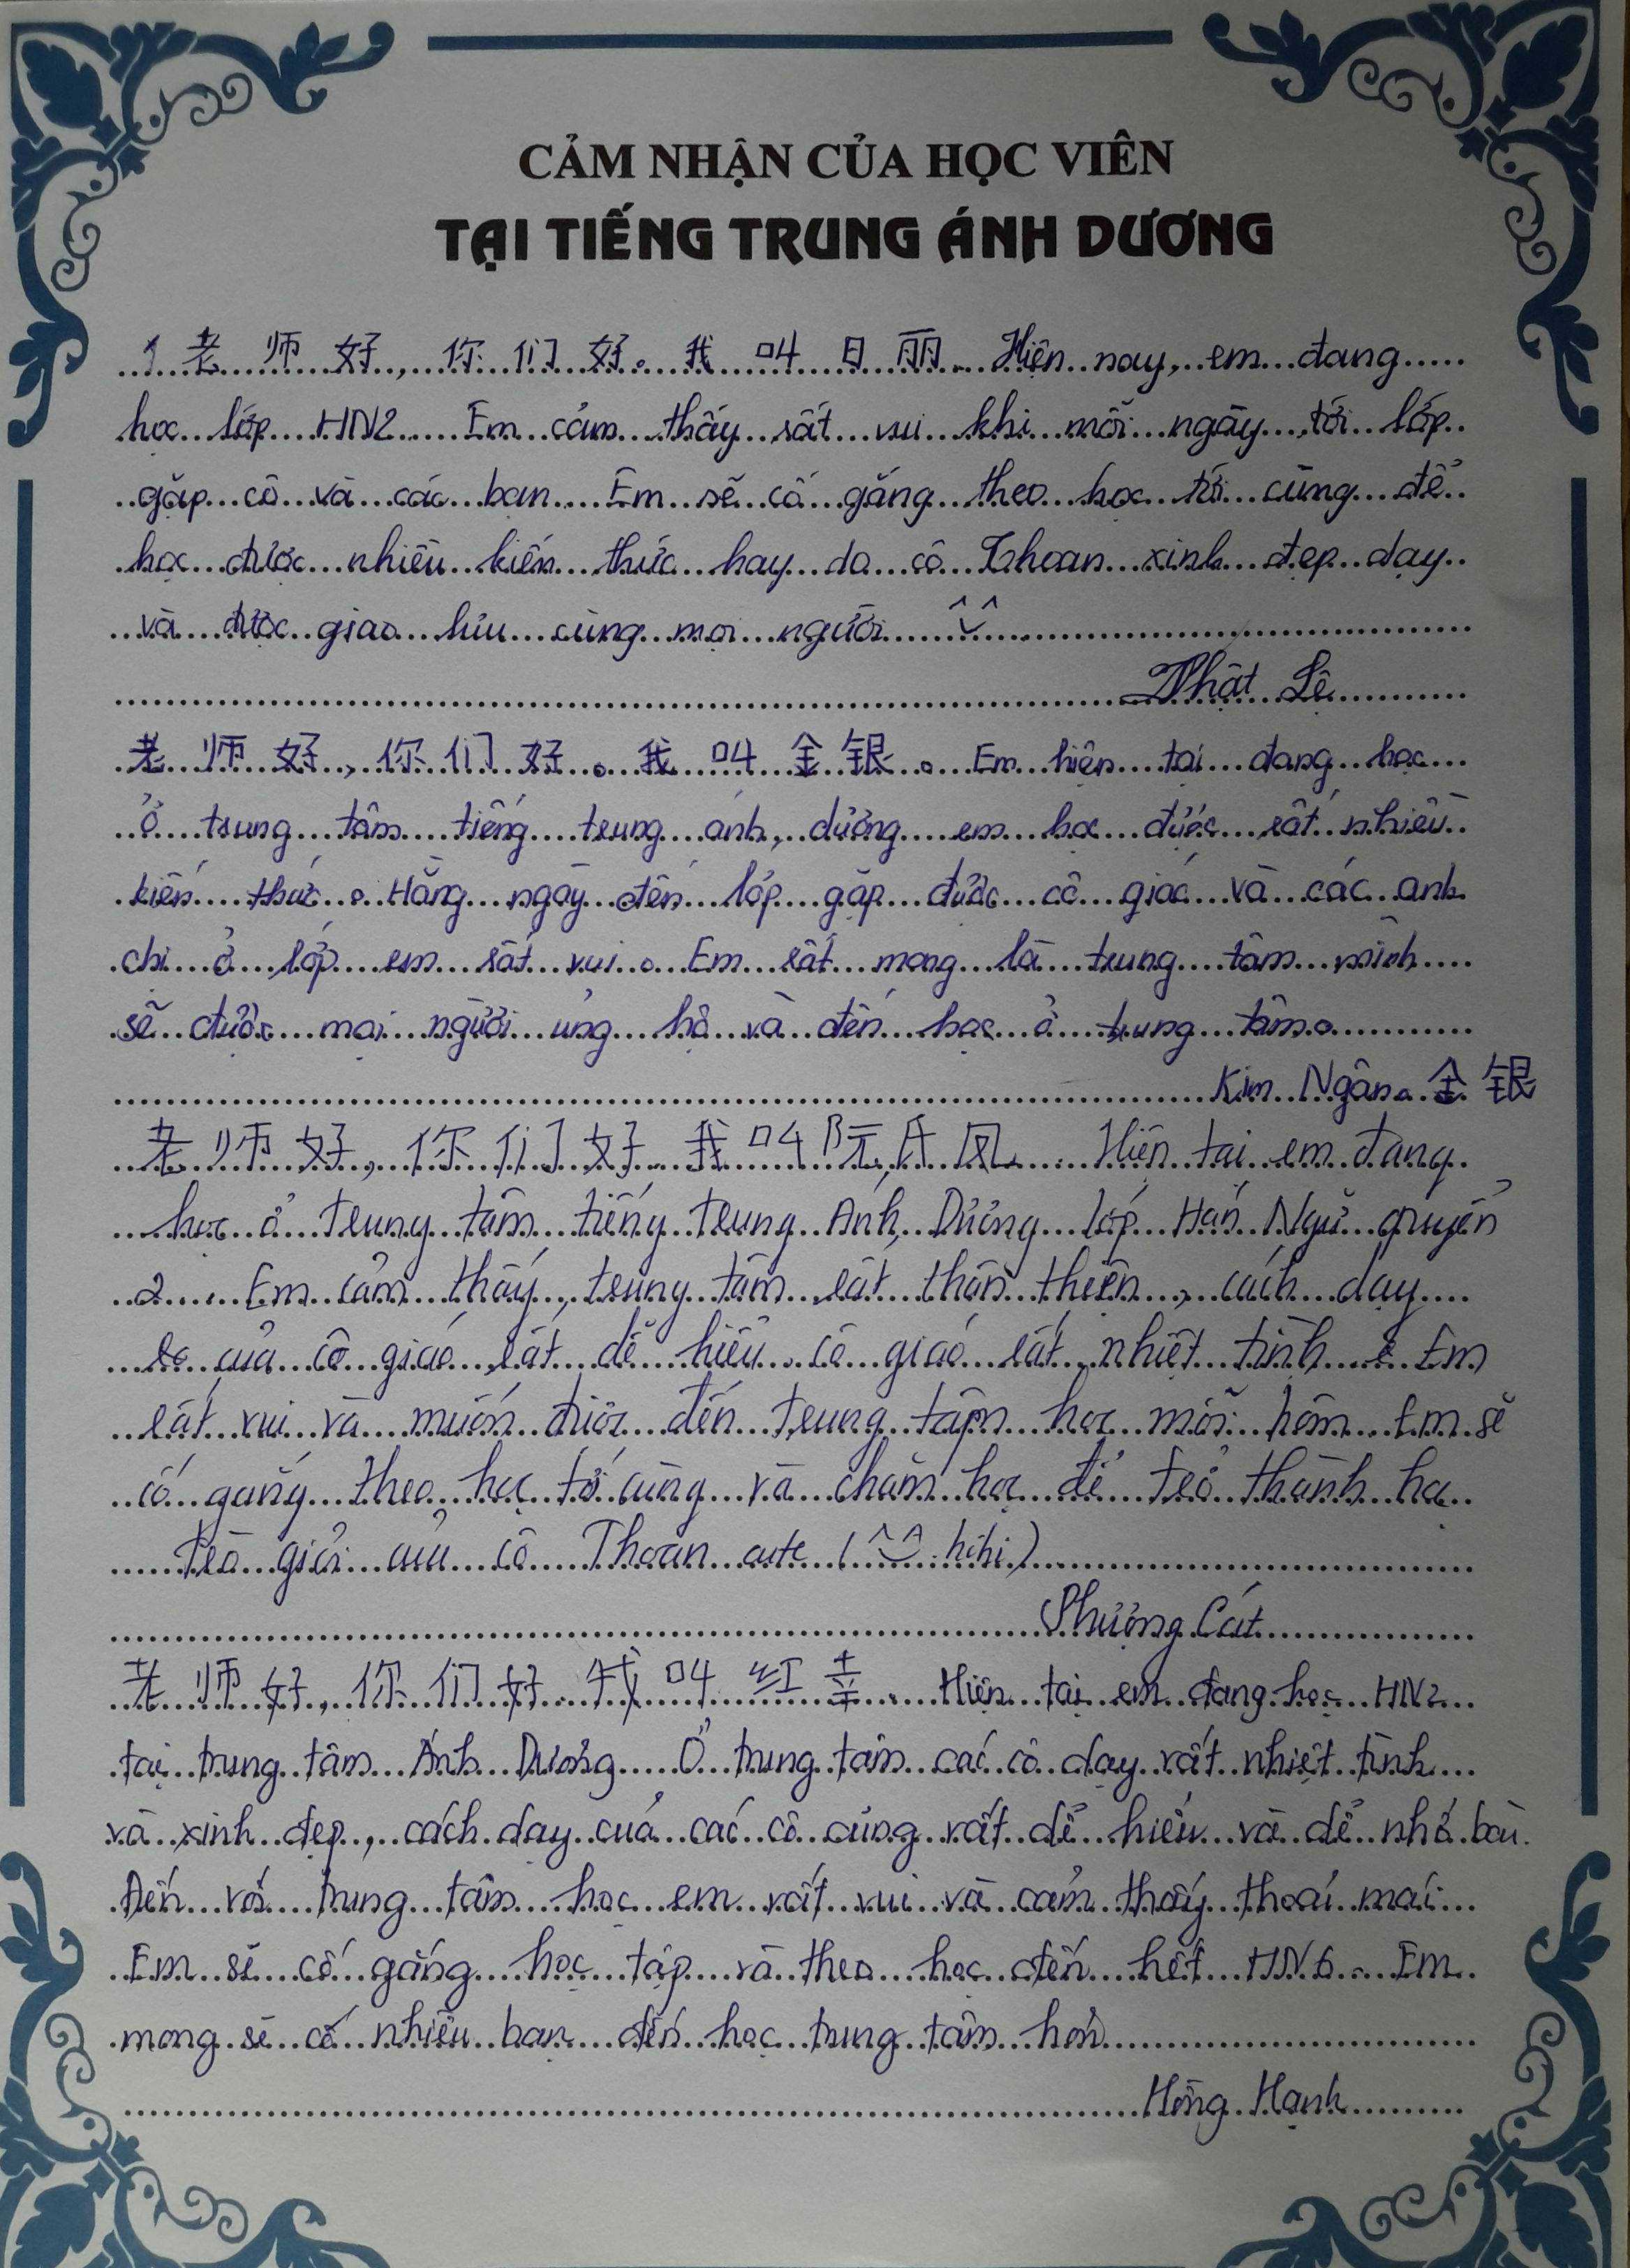 CẢM NHẬN CỦA HỌC VIÊN
TẠI TIẾNG TRUNG ÁNH DƯƠNG
1 老师好, 你们好。我叫日丽. Hiện nay, em đang
học lớp HN2. Em cảm thấy rất vui khi mỗi ngày tới lớp
gặp cô và các bạn. Em sẽ cố gắng theo học tới cùng để
học được nhiều kiến thức hay do cô Thoan xinh đẹp dạy
và được giao lưu cùng mọi người ^^
Nhật Lệ
老师好, 你们好。我叫金银。Em hiện tại đang học
ở trung tâm tiếng trung ánh dương em học được rất nhiều
kiến thức. Hằng ngày đến lớp gặp được cô giáo và các anh
chị ở lớp em rất vui. Em rất mong là trung tâm mình
sẽ được mọi người ủng hộ và đến học ở trung tâm.
Kim Ngân. 金银
老师好, 你们好. 我叫阮氏凤. Hiện tại em đang
học ở trung tâm tiếng Trung Ánh Dương lớp Hán Ngữ quyển
2. Em cảm thấy trung tâm rất thân thiện, cách dạy
của cô giáo rất dễ hiểu. cô giáo rất nhiệt tình. Em
rất vui và muốn được đến trung tâm học mỗi hôm. Em sẽ
cố gắng theo học tới cùng và chăm học để trở thành học
trò giỏi của cô Thoan cute (^^ hihi)
Phượng Cát
老师好, 你们好. 我叫红幸. Hiện tại em đang học HN2
tại trung tâm Ánh Dương. Ở trung tâm các cô dạy rất nhiệt tình
và xinh đẹp, cách dạy của các cô cũng rất dể hiểu và dể nhớ bài.
Đến với trung tâm học em rất vui và cảm thấy thoải mái.
Em sẽ cố gắng học tập và theo học đến hết HN6. Em
mong sẽ có nhiều bạn đến học trung tâm hơn
Hồng Hạnh